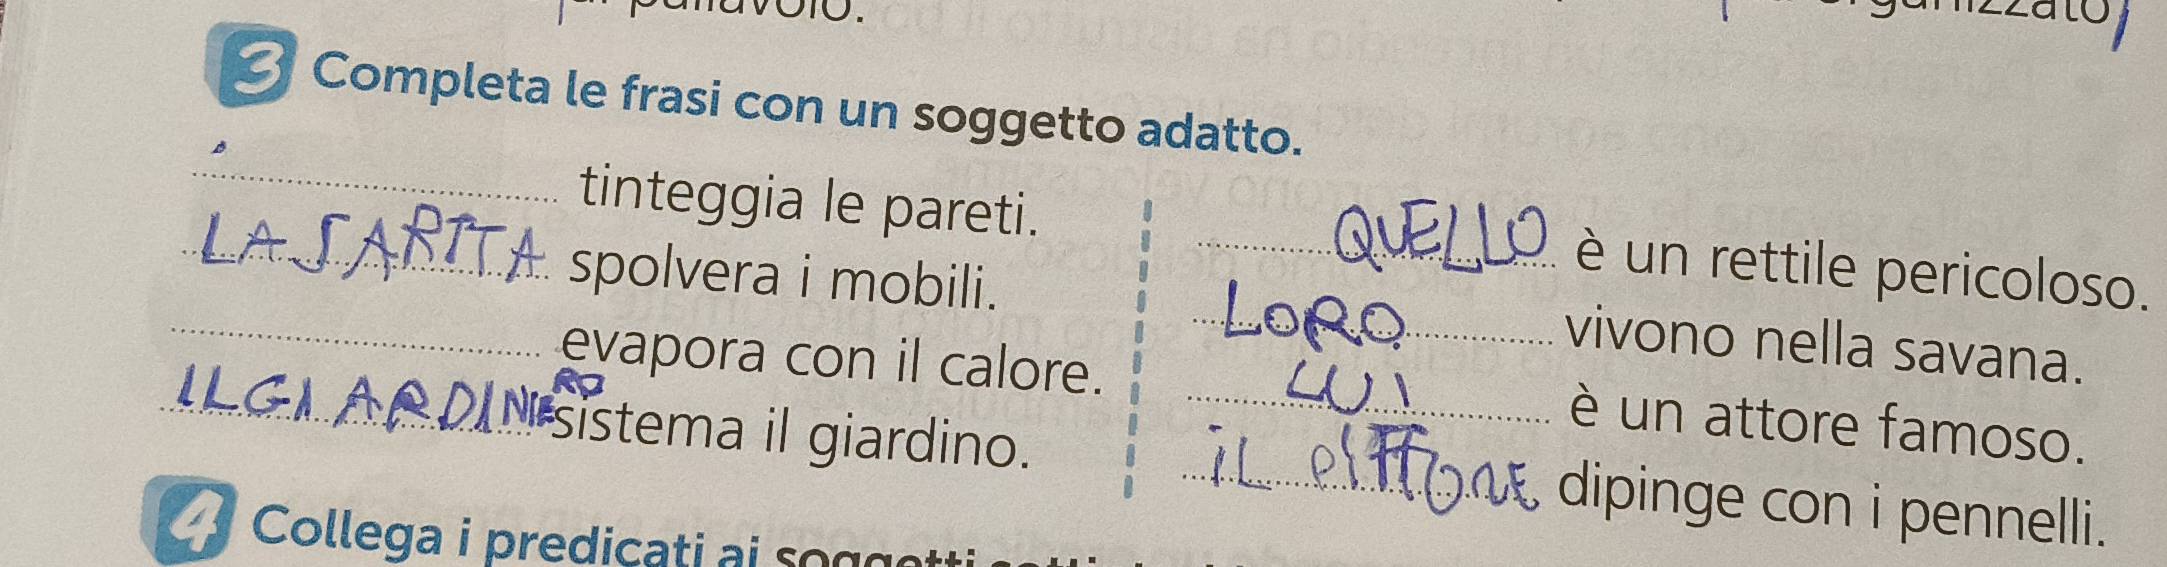 3 Completa le frasi con un soggetto adatto.
tinteggia le pareti.
LA SARITA spolvera i mobili.
evapora con il calore.
IL GIARDINIERO sistema il giardino.
QUELLO è un rettile pericoloso.
LORO vivono nella savana.
LUI è un attore famoso.
IL PITTORE dipinge con i pennelli.
4 Collega i predicati ai soggetti